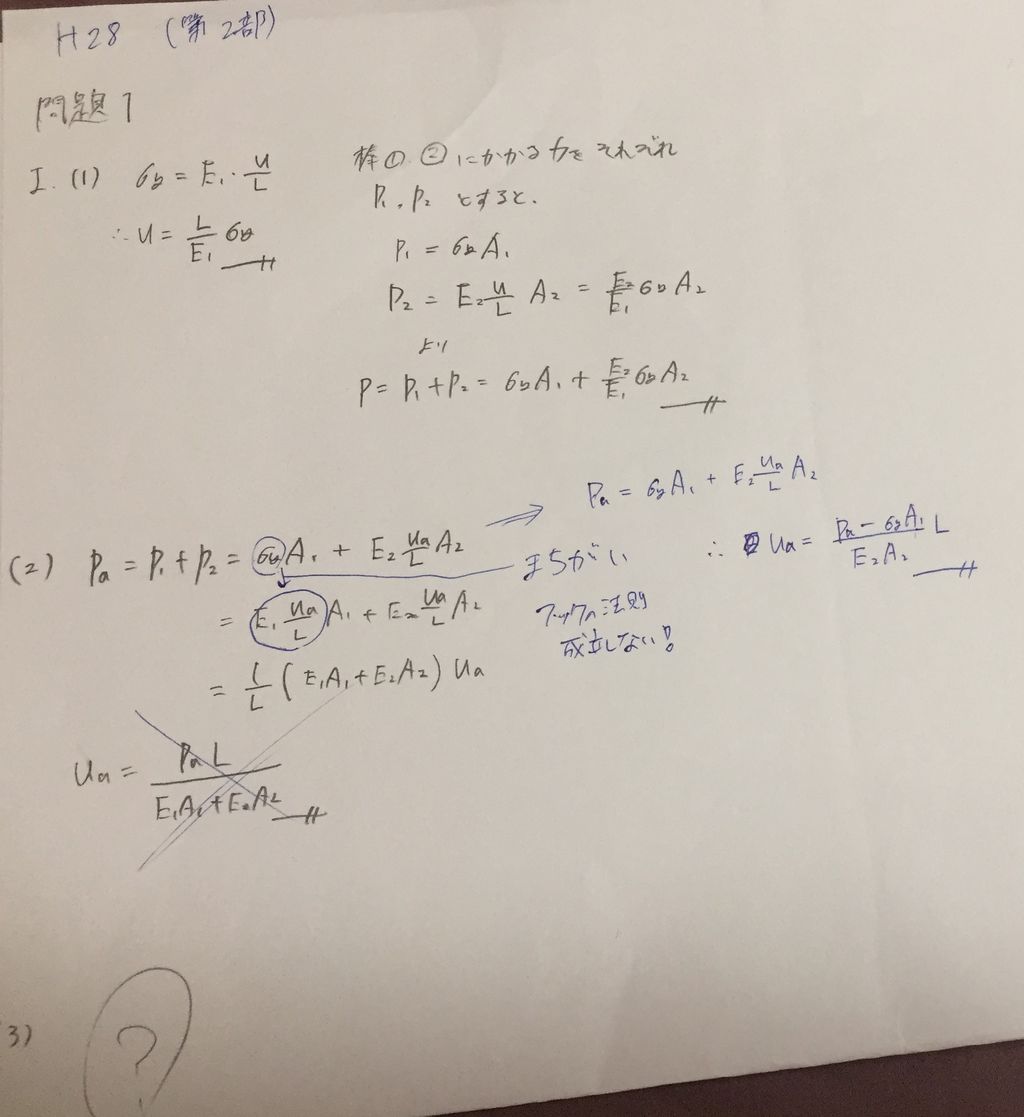 H28 (第2部)
問題1
I. (1) σy = E₁・u/L
∴ u = L/E₁ σy
棒① ②にかかる力をそれぞれ
P₁, P₂ とすると.
P₁ = σyA₁
P₂ = E₂ u/L A₂ = E₂/E₁ σyA₂
より
P = P₁ + P₂ = σyA₁ + E₂/E₁ σyA₂
(2) Pa = P₁ + P₂ = σyA₁ + E₂ ua/L A₂
= E₁ ua/L A₁ + E₂ ua/L A₂
= 1/L (E₁A₁ + E₂A₂) ua
ua = PaL/E₁A₁+E₂A₂
⇒ Pa = σyA₁ + E₂ ua/L A₂
∴ ua = Pa - σyA₁/E₂A₂ L
まちがい
フックの法則
成立しない!
3) ?